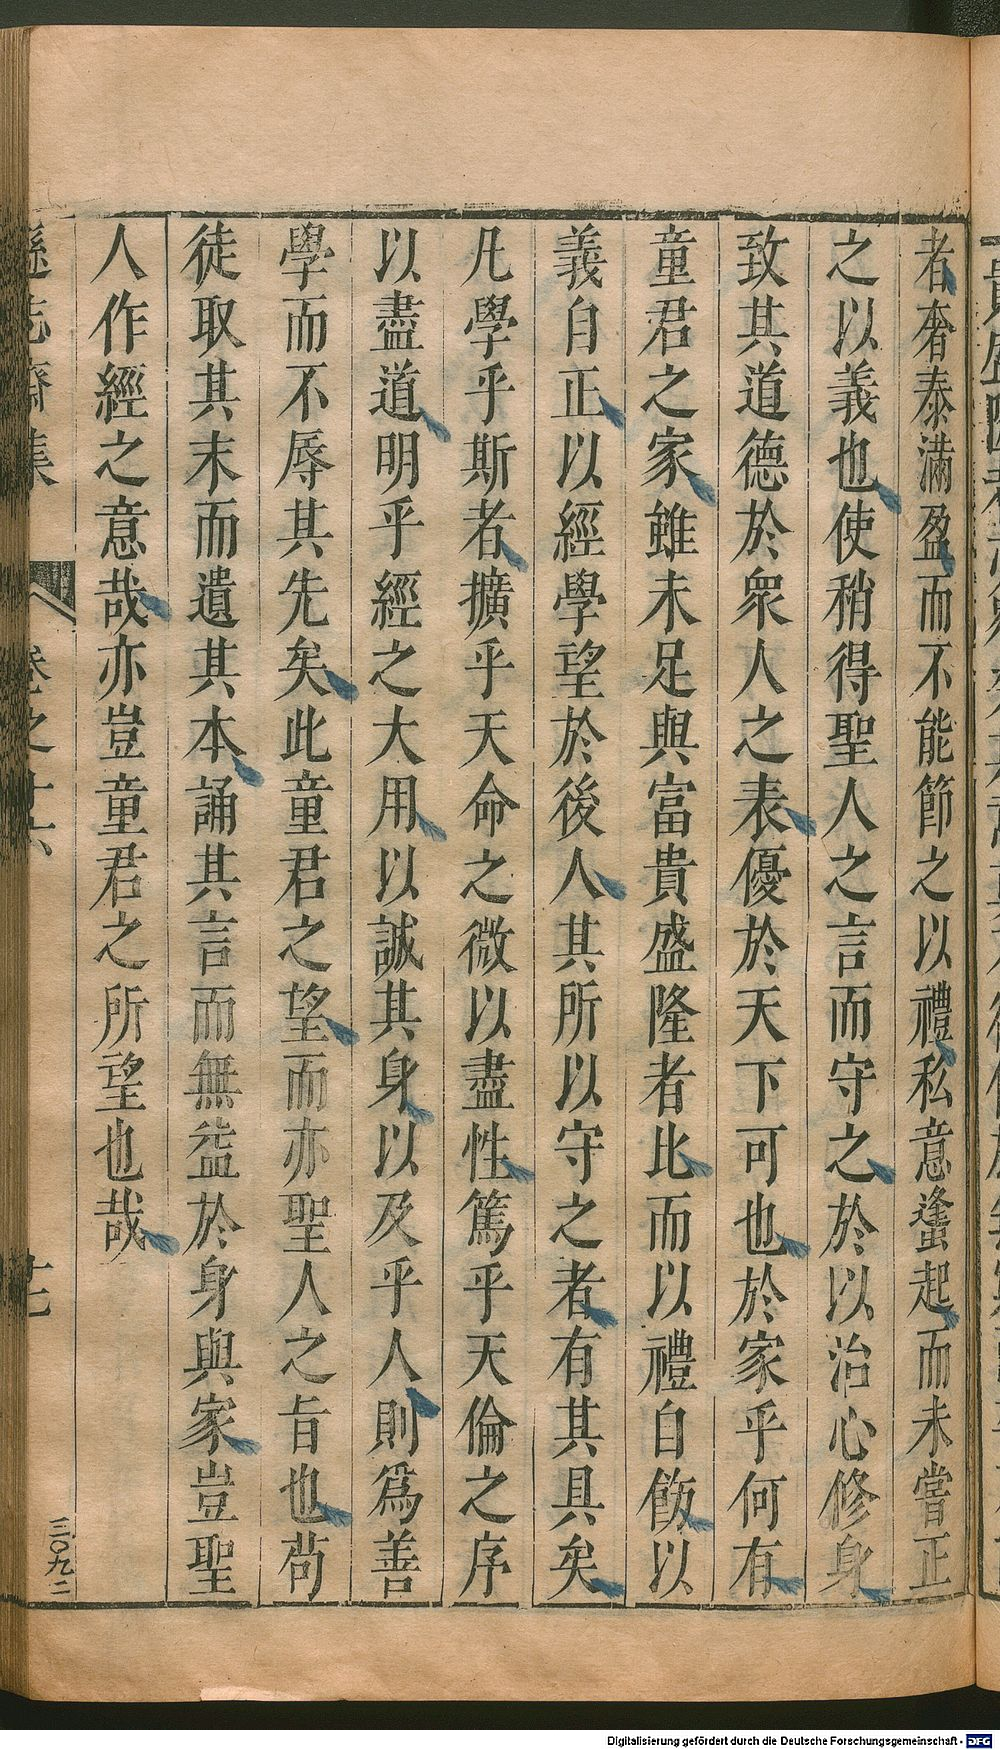 者奢泰滿盈而不能節之以禮私意蜂起而未嘗正
之以義也使稍得聖人之言而守之於以治心修身
致其道德於衆人之表優於天下可也於家乎何有
童君之家雖未足與富貴盛隆者比而以禮自飭以
義自正以經學望於後人其所以守之者有其具矣
凡學乎斯者擴乎天命之微以盡性篤乎天倫之序
以盡道明乎經之大用以誠其身以及乎人則爲善
學而不辱其先矣此童君之望而亦聖人之旨也苟
徒取其末而遺其本誦其言而無益於身與家豈聖
人作經之意哉亦豈童君之所望也哉
遜志齋集 卷之十六 十七
三〇九二
Digitalisierung gefördert durch die Deutsche Forschungsgemeinschaft - DFG